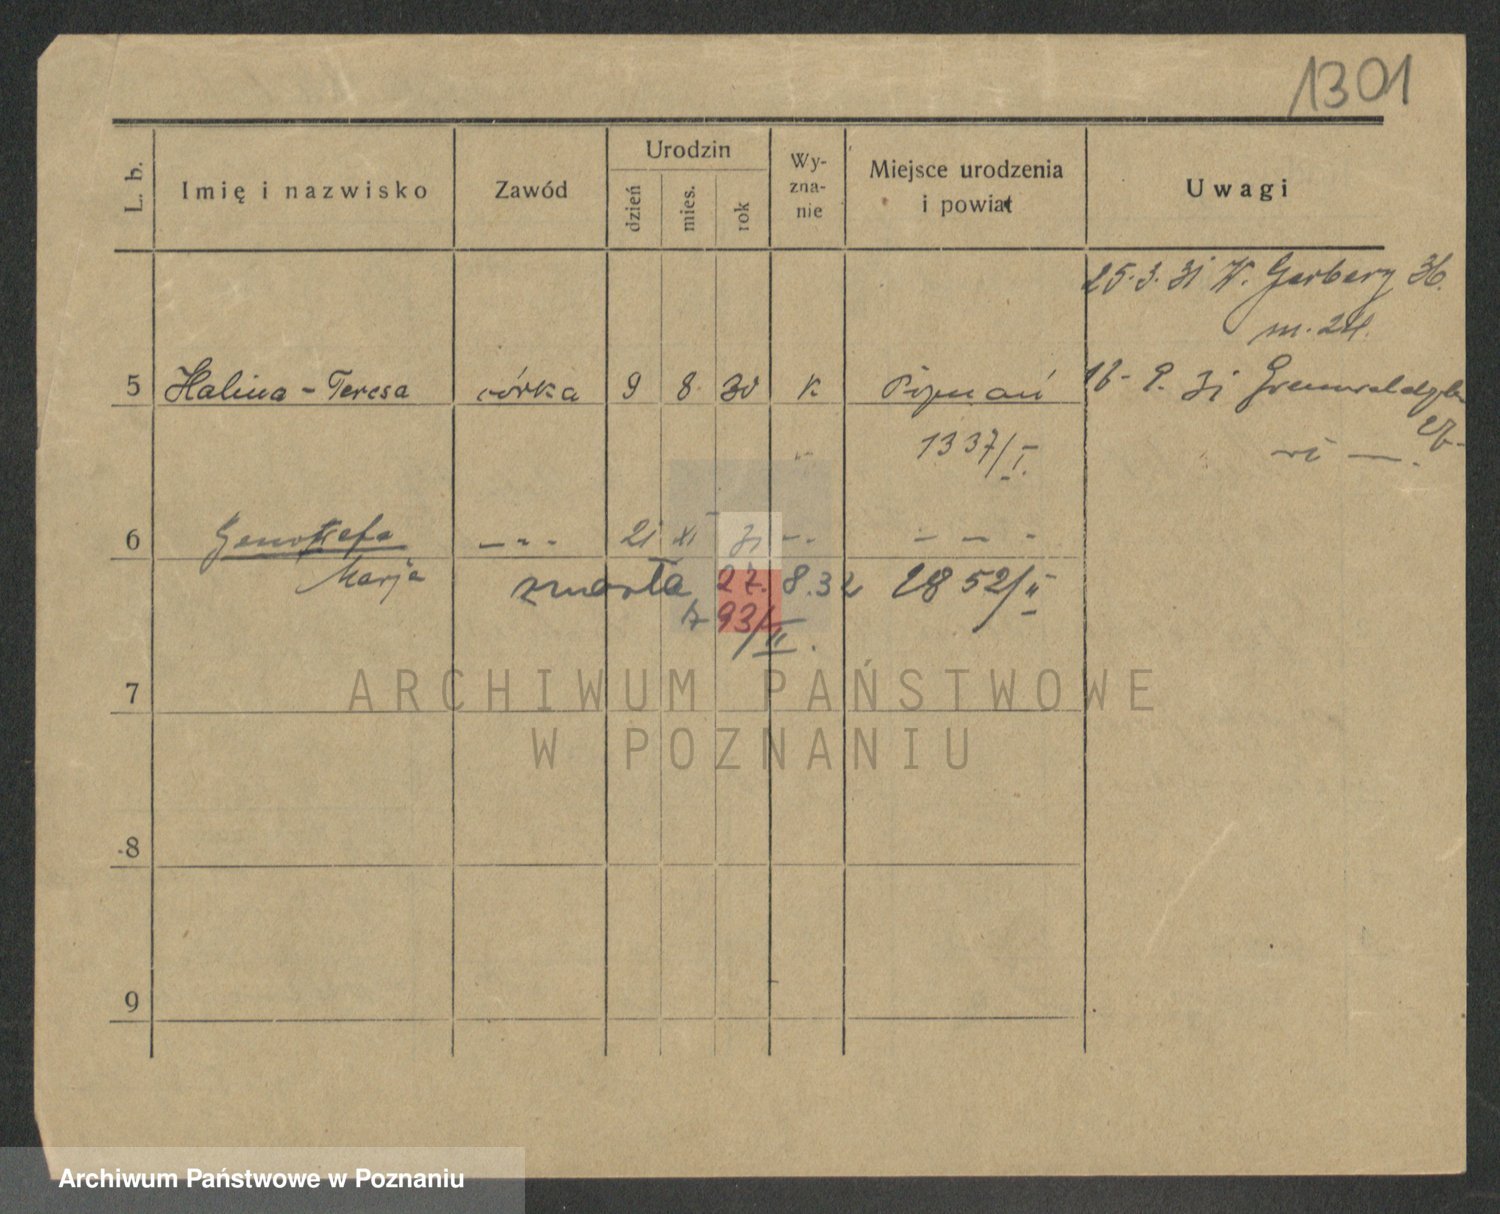 1301
L. b. Imię i nazwisko Zawód Urodzin dzień mies. rok Wy-zna-nie Miejsce urodzenia i powiat Uwagi
25.3.31 W. Garbary 36.
m. 24.
5 Halina - Teresa córka 9 8 30 k Poznań
16- 9. 31 Grunwaldzka
1337/I.
6 Genowefa — - - 21 XI 31 - - — — -
Marja
zmarła 27. 8.32 2852/II
793/II.
7
ARCHIWUM PAŃSTWOWE
W POZNANIU
8
9
Archiwum Państwowe w Poznaniu